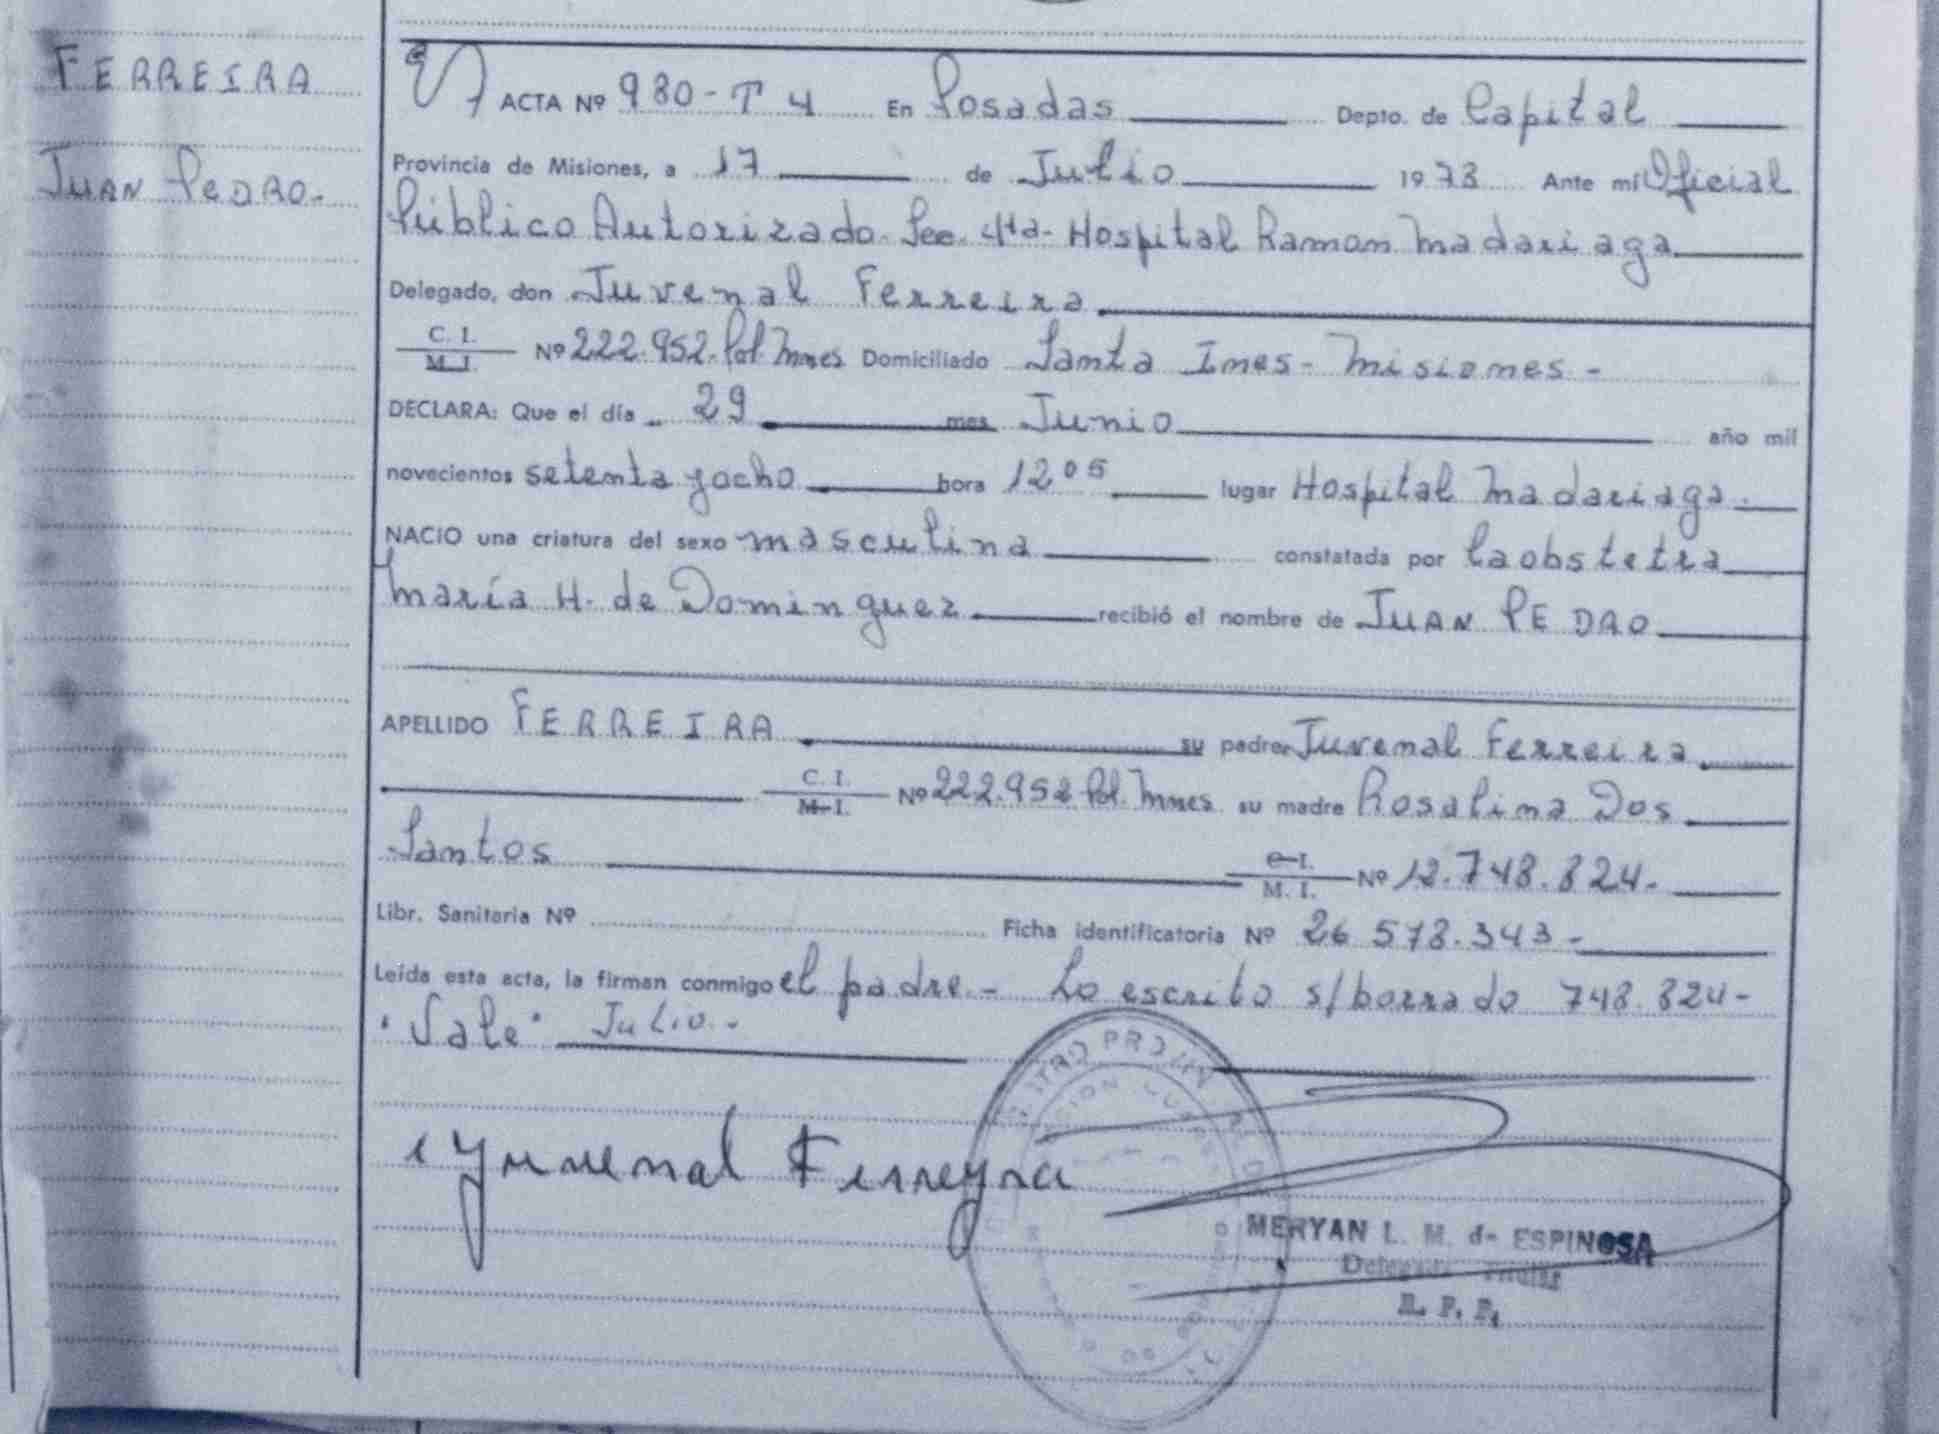 FERREIRA
JUAN PEDRO.-
ACTA Nº 980-T 4 En Posadas Depto. de Capital
Provincia de Misiones, a 17 de Julio 1978 Ante mi Oficial
Público Autorizado. Sec. 4ta- Hospital Ramon Madariaga
Delegado, don Juvenal Ferreira
C. I.
M. I. Nº 222.952. Pol. Mnes Domiciliado Santa Ines - Misiones -
DECLARA: Que el día 29 mes Junio año mil
novecientos setenta y ocho hora 12 05 lugar Hospital Madariaga.
NACIO una criatura del sexo masculina constatada por la obstetra
María H. de Dominguez recibió el nombre de JUAN PEDRO
APELLIDO FERREIRA su padre Juvenal Ferreira
C. I.
M. I. Nº 222.952 Pol. Mnes su madre Rosalina Dos
Santos C. I.
M. I. Nº 12.748.824.-
Libr. Sanitaria Nº Ficha identificatoria Nº 26 578.343 -
Leída esta acta, la firman conmigo el padre.- Lo escrito s/borrado 748.824-
"Vale" Julio.-
Juvenal Ferreyra
MERYAN L. M. de ESPINOSA
Delegada Titular
R. P. P.